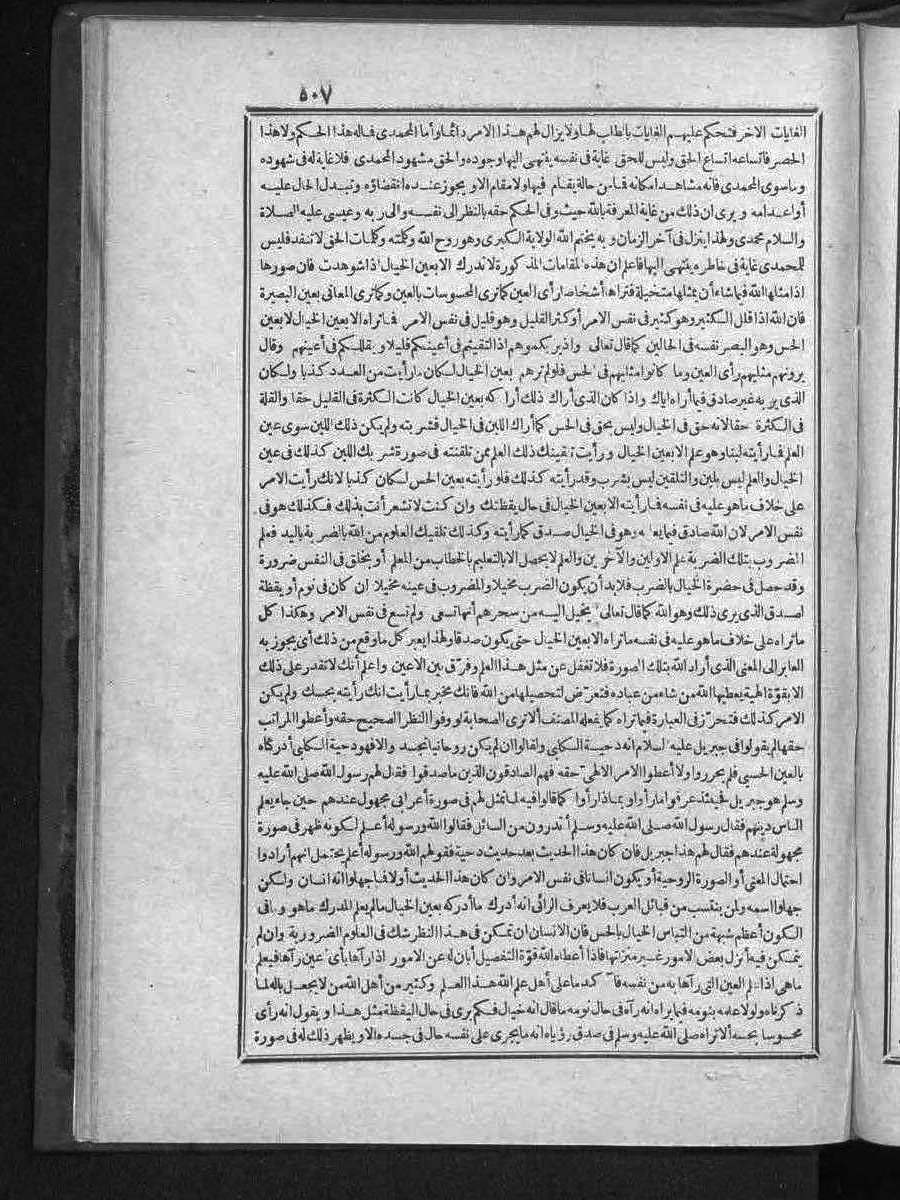 ٥٠٧
الغايات الاخر فتحكم عليهم الغايات بالطلب لها ولا يزال لهم هذا الامر دائما وأما المحمدى فماله هذا الحكم ولا هذا
الحصر فاتساعه اتساع الحق وليس للحق غاية فى نفسه ينتهى اليها وجوده والحق مشهود المحمدى فلا غاية له فى شهوده
وما سوى المحمدى فانه مشاهد امكانه فما من حالة يقام فيها ولا مقام الا و يجوز عنده انقضاؤه وتبدل الحال عليه
أو اعدامه و يرى ان ذلك من غاية المعرفة بالله حيث وفى الحكم حقه بالنظر الى نفسه والى ربه وعيسى عليه الصلاة
والسلام محمدى ولهذا ينزل فى آخر الزمان و به يختم الله الولاية الكبرى وهو روح الله وكلمته وكلمات الحق لا تنفد فليس
للمحمدى غاية فى خاطره ينتهى اليها فاعلم ان هذه المقامات المذكورة لا تدرك الا بعين الخيال اذا شوهدت فان صورها
اذا مثلها الله فيما شاء أن يمثلها متخيلة فتراها أشخاصا رأى العين كما ترى المحسوسات بالعين وكما ترى المعانى بعين البصيرة
فان الله اذا قلل الكثير وهو كثير فى نفس الامر أو كثر القليل وهو قليل فى نفس الامر فما تراه الا بعين الخيال لا بعين
الحس وهو البصر نفسه فى الحالين كما قال تعالى واذ يريكموهم اذ التقيتم فى أعينكم قليلا و يقللكم فى أعينهم وقال
يرونهم مثليهم رأى العين وما كانوا مثليهم فى الحس فلو لم ترهم بعين الخيال لكان ما رأيت من العدد كذبا ولكان
الذى يريه غير صادق فيما أراه اياك واذا كان الذى أراك ذلك أراكه بعين الخيال كانت الكثرة فى القليل حقا والقلة
فى الكثرة حقا لانه حق فى الخيال وليس بحق فى الحس كما أراك اللبن فى الخيال فشربته ولم يكن ذلك اللبن سوى عين
العلم فما رأيته لبنا وهو علم الا بعين الخيال ورأيت تلقينك ذلك العلم ممن تلقنته فى صورة شربك اللبن كذلك فى عين
الخيال والعلم ليس بلبن والتلقين ليس بشرب وقد رأيته كذلك فلو رأيته بعين الحس لكان كذبا لانك رأيت الامر
على خلاف ما هو عليه فى نفسه فما رأيته الا بعين الخيال فى حال يقظتك وان كنت لا تشعر أنت بذلك فكذلك هو فى
نفس الامر لان الله صادق فيما يعلمه وهو فى الخيال صدق كما رأيته وكذلك تلقيك العلوم من الله بالضرب باليد فعلم
المضروب بتلك الضربة علم الاولين والآخرين والعلم لا يحصل الا بالتعليم بالخطاب من المعلم أو يخلق فى النفس ضرورة
وقد حصل فى حضرة الخيال بالضرب فلا بد أن يكون الضرب مخيلا والمضروب فى عينه مخيلا ان كان فى نوم أو يقظة
لصدق الذى يرى ذلك وهو الله كما قال تعالى يخيل اليه من سحرهم أنها تسعى ولم تسع فى نفس الامر وهكذا كل
ما تراه على خلاف ما هو عليه فى نفسه ما تراه الا بعين الخيال حتى يكون صدقا ولهذا يعبر كل ما وقع من ذلك أى يجوز به
العابر الى المعنى الذى أراد الله بتلك الصورة فلا تغفل عن مثل هذا العلم وفرق بين الاعين واعلم أنك لا تقدر على ذلك
الا بقوة الهية يعطيها الله من شاء من عباده فتعرض لتحصيلها من الله فانك مخبر بما رأيت انك رأيته بحسك ولم يكن
الامر كذلك فتحرز فى العبارة فيما تراه كما يفعله المصنف ألا ترى الصحابة لو وفوا النظر الصحيح حقه وأعطوا المراتب
حقها لم يقولوا فى جبريل عليه السلام انه دحية الكلبى ولقالوا ان لم يكن روحانيا تجسد والا فهو دحية الكلبى أدركناه
بالعين الحسى فلم يحرروا ولا أعطوا الامر الالهى حقه فهم الصادقون الذين ما صدقوا فقال لهم رسول الله صلى الله عليه
وسلم هو جبريل فحينئذ عرفوا ما رأوا و بماذا رأوا كما قالوا فيه لما تمثل لهم فى صورة أعرابى مجهول عندهم حين جاء يعلم
الناس دينهم فقال رسول الله صلى الله عليه وسلم أتدرون من السائل فقالوا الله ورسوله أعلم لكونه ظهر فى صورة
مجهولة عندهم فقال لهم هذا جبريل فان كان هذا الحديث بعد حديث دحية فقولهم الله ورسوله أعلم يحتمل انهم أرادوا
احتمال المعنى أو الصورة الروحية أو يكون انسانا فى نفس الامر وان كان هذا الحديث أولا فما جهلوا انه انسان ولكن
جهلوا اسمه ولمن ينتسب من قبائل العرب فلا يعرف الرائى انه أدرك ما أدركه بعين الخيال ما لم يعلم المدرك ما هو وما فى
الكون أعظم شبهة من التباس الخيال بالحس فان الانسان ان تمكن فى هذا النظر شك فى العلوم الضرورية وان لم
يتمكن فيه أنزل بعض الامور غير منزلتها فاذا أعطاه الله قوة التفصيل أبان له عن الامور اذا رآها بأى عين رآها فيعلم
ما هى اذا علم العين التى رآها به من نفسه فآكد ما على أهل علم الله هذا العلم وكثير من أهل الله من لا يجعل باله لما
ذكرناه ولولا علمه بنومه فيما يراه انه رآه فى حال نومه ما قال انه خيال فكم يرى فى حال اليقظة مثل هذا و يقول انه رأى
محسوسا بحسه ألا تراه صلى الله عليه وسلم فى صدق رؤياه انه ما يجرى على نفسه حال فى جسده الا و يظهر ذلك له فى صورة